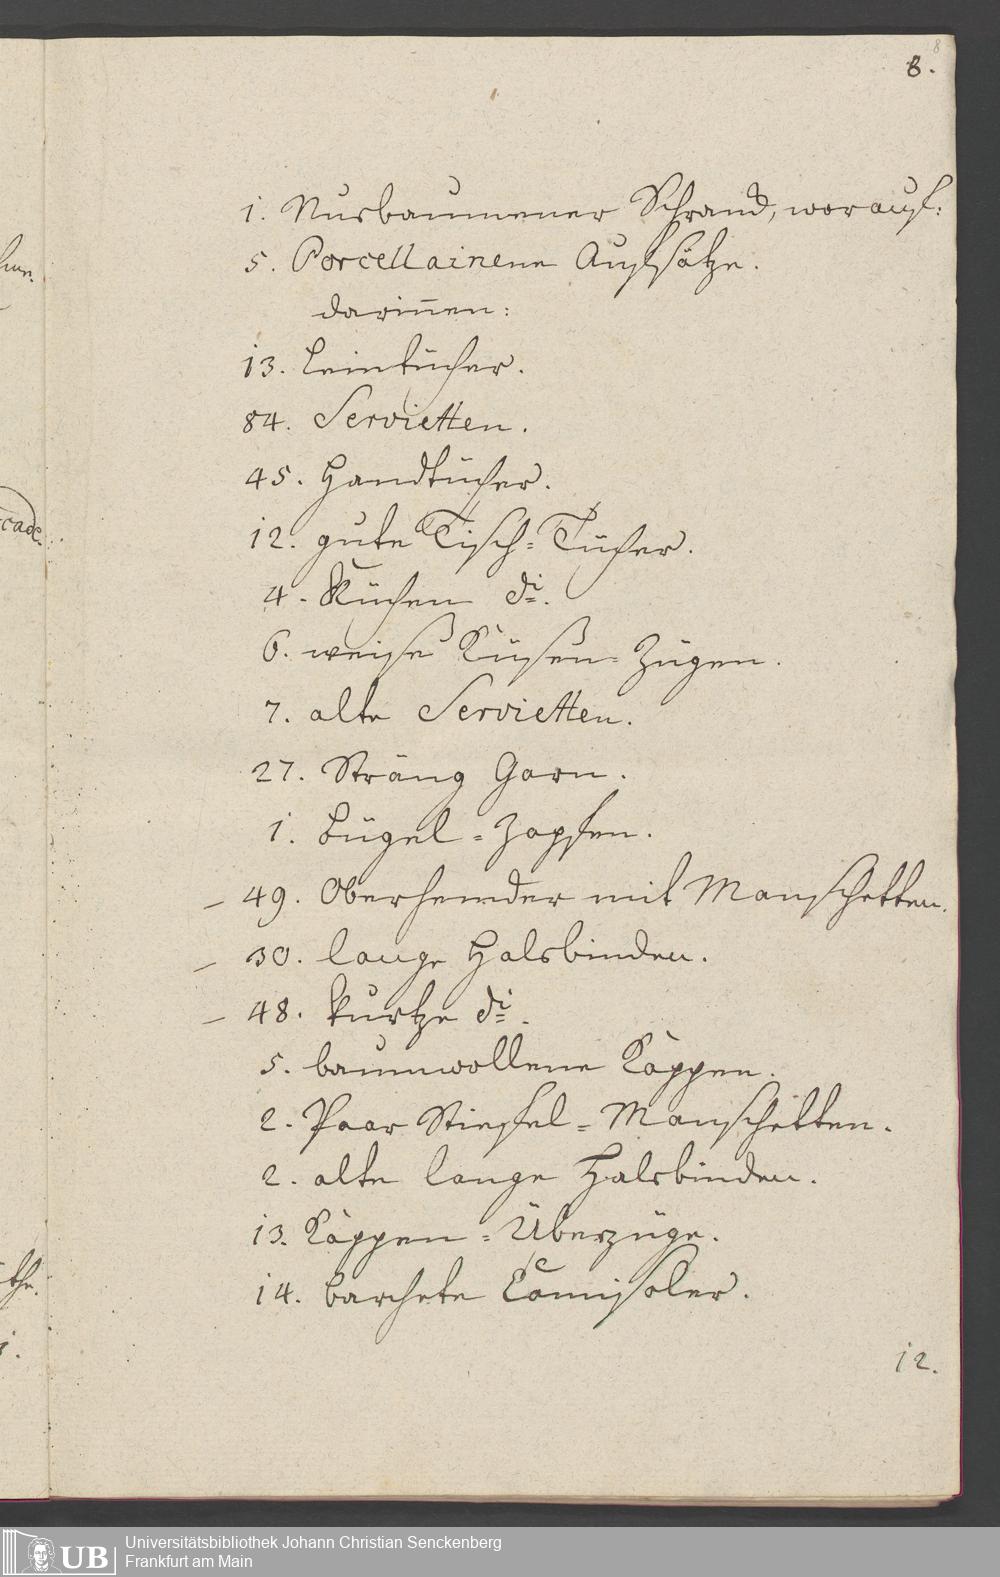 8
8.
1. Nusbaumener Schranck, worauf:
5. Porcellainene Aufsätze.
darinnen:
13. Leintücher.
84. Servietten.
45. Handtücher.
12. gute Tisch=Tücher.
4. Küchen di.
6. weise Küsen=Zügen.
7. alte Servietten.
27. Sträng Garn.
1. Bügel=Zapfen.
– 49. Oberhemder mit Manschetten.
– 30. lange Halsbinden.
– 48. kurtze di.
5. baumwollene Kappen.
2. Paar Stiefel=Manschetten.
2. alte lange Halsbinden.
13. Kappen=Überzüge.
14. barchete Camisoler.
12.
UB
Universitätsbibliothek Johann Christian Senckenberg
Frankfurt am Main